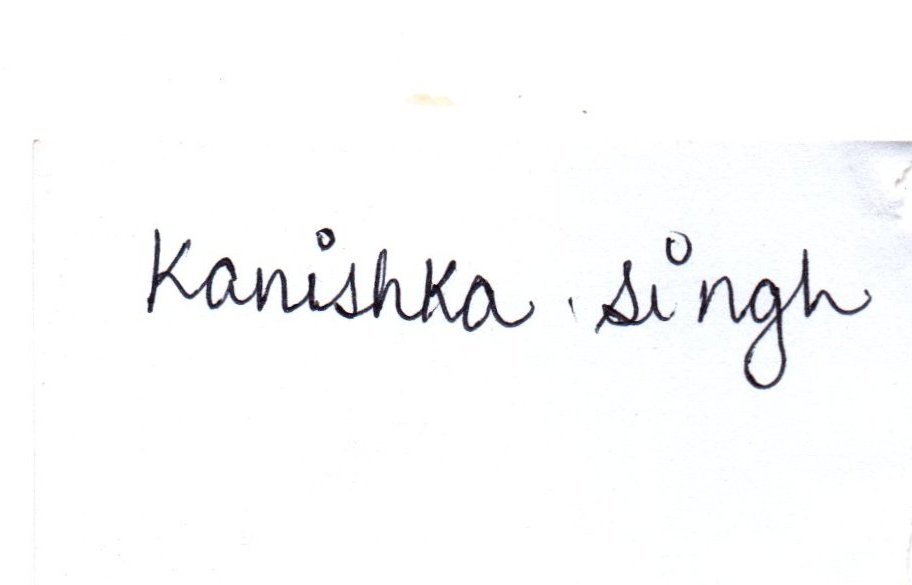 Kanishka singh